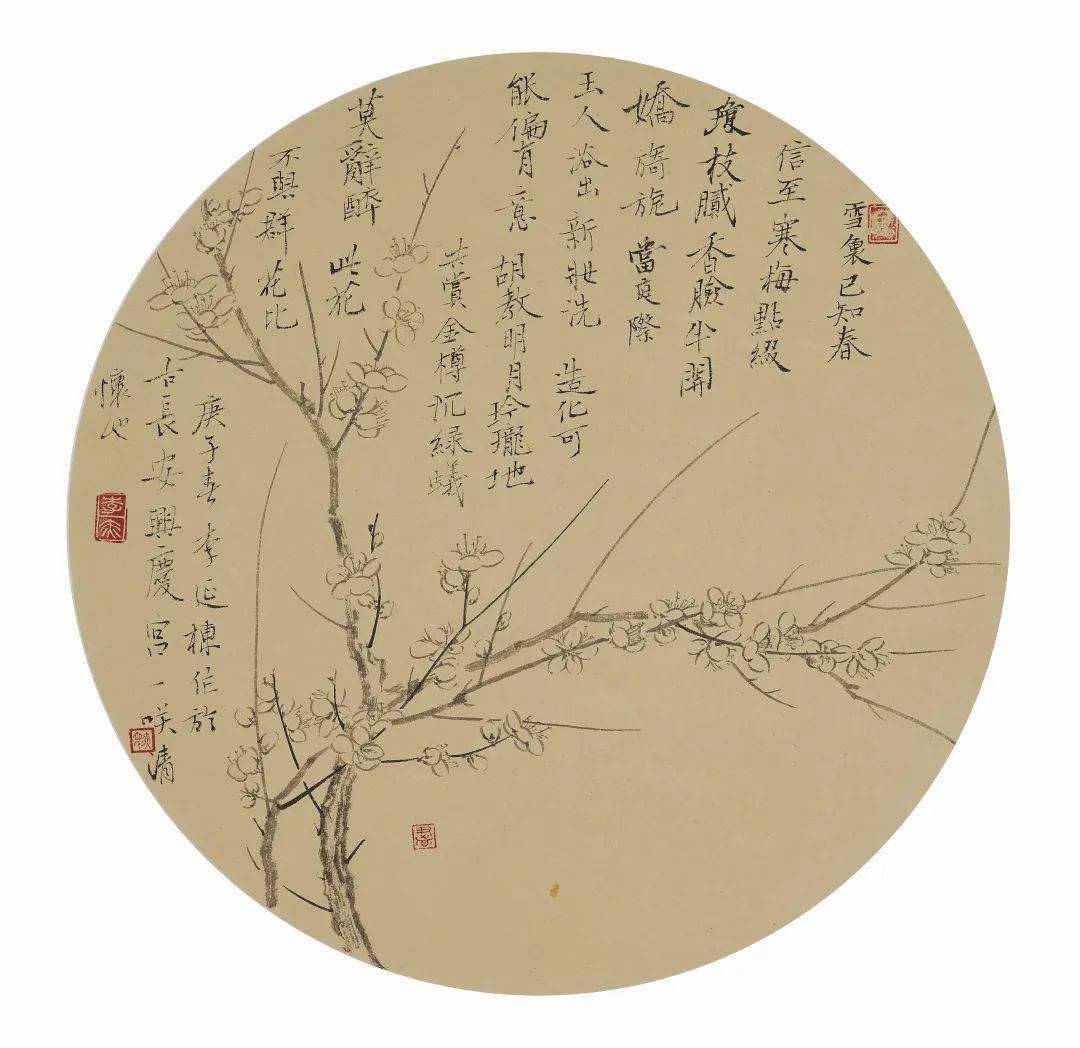 雪裏已知春
信至寒梅點綴
瓊枝膩香臉半開
嬌旖旎當庭際
玉人浴出新妝洗 造化可
能偏有意 胡教明月玲瓏地
共賞金樽沉綠蟻
莫辭醉 此花
不與群花比
庚子春李延棟作於
古長安興慶宮一咲清
懷也